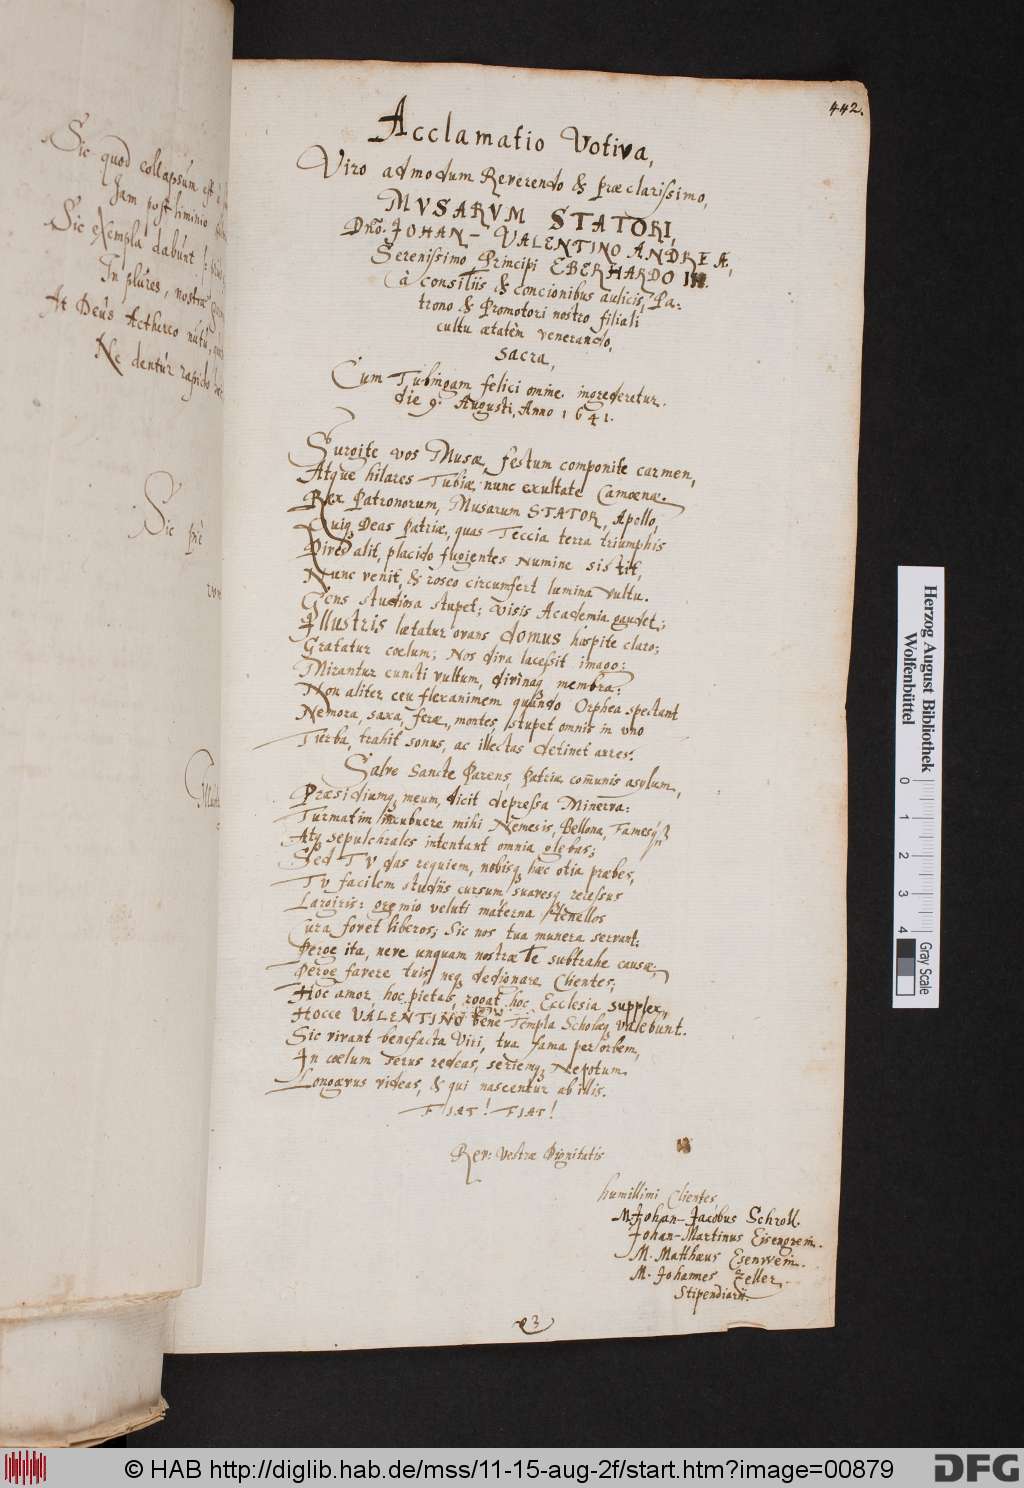 442.
Acclamatio Votiva,
Viro admodum Reverendo & præclarissimo,
MVSARVM STATORI,
Dnō. JOHAN-VALENTINO ANDREÆ,
Serenissimo Principi EBERHARDO III.
à consiliis & concionibus aulicis, Pa-
trono & Promotori nostro filiali
cultu ætatèm venerando,
sacra,
Cum Tubingam felici omine ingrederetur.
die 9. Augusti, Anno 1641.
Surgite vos Musæ, festum componite carmen,
Atque hilares Tubiæ nunc exultate Camœnæ.
Rex Patronorum, Musarum STATOR, Apollo,
Quiq Deas Patriæ, quas Teccia terra triumphis
Dives alit, placido fugientes Numine sistit,
Nunc venit, & roseo circumfert lumina vultu.
Gens studiosa stupet; visis Academia gaudet;
Illustris lætatur ovans domus hospite claro;
Gratatur cœlum; Nos diva lacessit imago:
Mirantur cuncti vultum, divinaq membra:
Non aliter ceu flexanimem quando Orphea spectant
Nemora, saxa, feræ, montes, stupet omnis in uno
Turba, trahit sonus, ac illectas detinet aures.
Salve Sancte Parens, Patriæ com̄unis asylum,
Præsidiumq meum, dicit depressa Minerva:
Turmatim incubuere mihi Nemesis, Bellona, Famesq
Atq sepulchrales intentant omnia glebas;
Sed TV das requiem, nobisq hæc otia præbes,
TV facilem studiis cursum suavesq recessus
Largiris: gremio veluti materna tenellos
Cura fovet liberos; Sic nos tua munera servant;
Perge ita, neve unquam nostræ Te subtrahe causæ,
Perge favere tuis, neq dedignare Clientes;
Hoc amor, hoc pietas, rogat hoc Ecclesia supplex,
Hocce VALENTINO benè Templa Scholæq valebunt.
Sic vivant benefacta Viri, tua fama per orbem,
In cœlum serus redeas, seriemq Nepotum
Longævus videas, & qui nascentur ab illis.
FIAT! FIAT!
Rev: Vestræ Dignitatis
humillimi Clientes
M. Johan-Jacobus Schroll.
Johan-Martinus Eisengrein.
M. Matthæus Esenwein.
M. Johannes Zeller.
Stipendiarii.
Sic quod collapsum est
Jam postliminio
Sic exempla dabunt
In plures, nostræ
At Deus Æthereo nutu,
Ne dentur rapido
Sic
Herzog August Bibliothek
Wolfenbüttel
0 1 2 3 4
Gray Scale
© HAB http://diglib.hab.de/mss/11-15-aug-2f/start.htm?image=00879
DFG